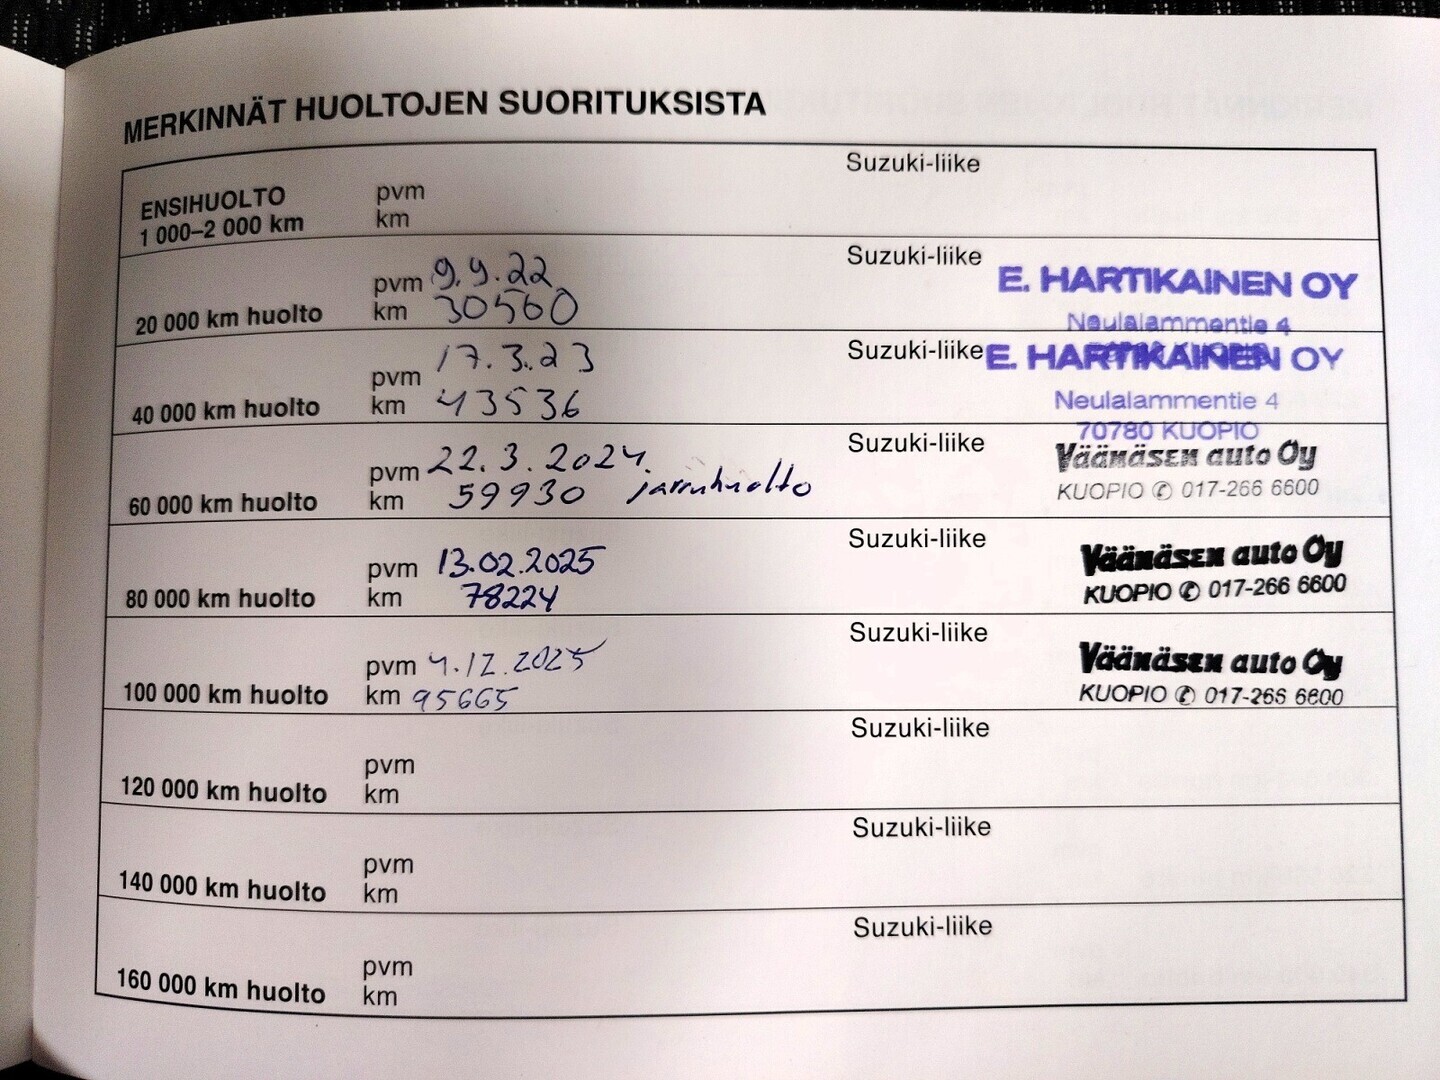 MERKINNÄT HUOLTOJEN SUORITUKSISTA
Suzuki-liike
ENSIHUOLTO
1 000–2 000 km
pvm
km
Suzuki-liike
E. HARTIKAINEN OY
Neulalammentie 4
20 000 km huolto
pvm 9.9.22
km 30560
Suzuki-liike
E. HARTIKAINEN OY
Neulalammentie 4
70780 KUOPIO
40 000 km huolto
pvm 17.3.23
km 43536
Suzuki-liike
Väänäsen auto Oy
KUOPIO ✆ 017-266 6600
60 000 km huolto
pvm 22.3.2024.
km 59930 jarruhuolto
Suzuki-liike
Väänäsen auto Oy
KUOPIO ✆ 017-266 6600
80 000 km huolto
pvm 13.02.2025
km 78224
Suzuki-liike
Väänäsen auto Oy
KUOPIO ✆ 017-266 6600
100 000 km huolto
pvm 4.12.2025
km 95665
Suzuki-liike
120 000 km huolto
pvm
km
Suzuki-liike
140 000 km huolto
pvm
km
Suzuki-liike
160 000 km huolto
pvm
km